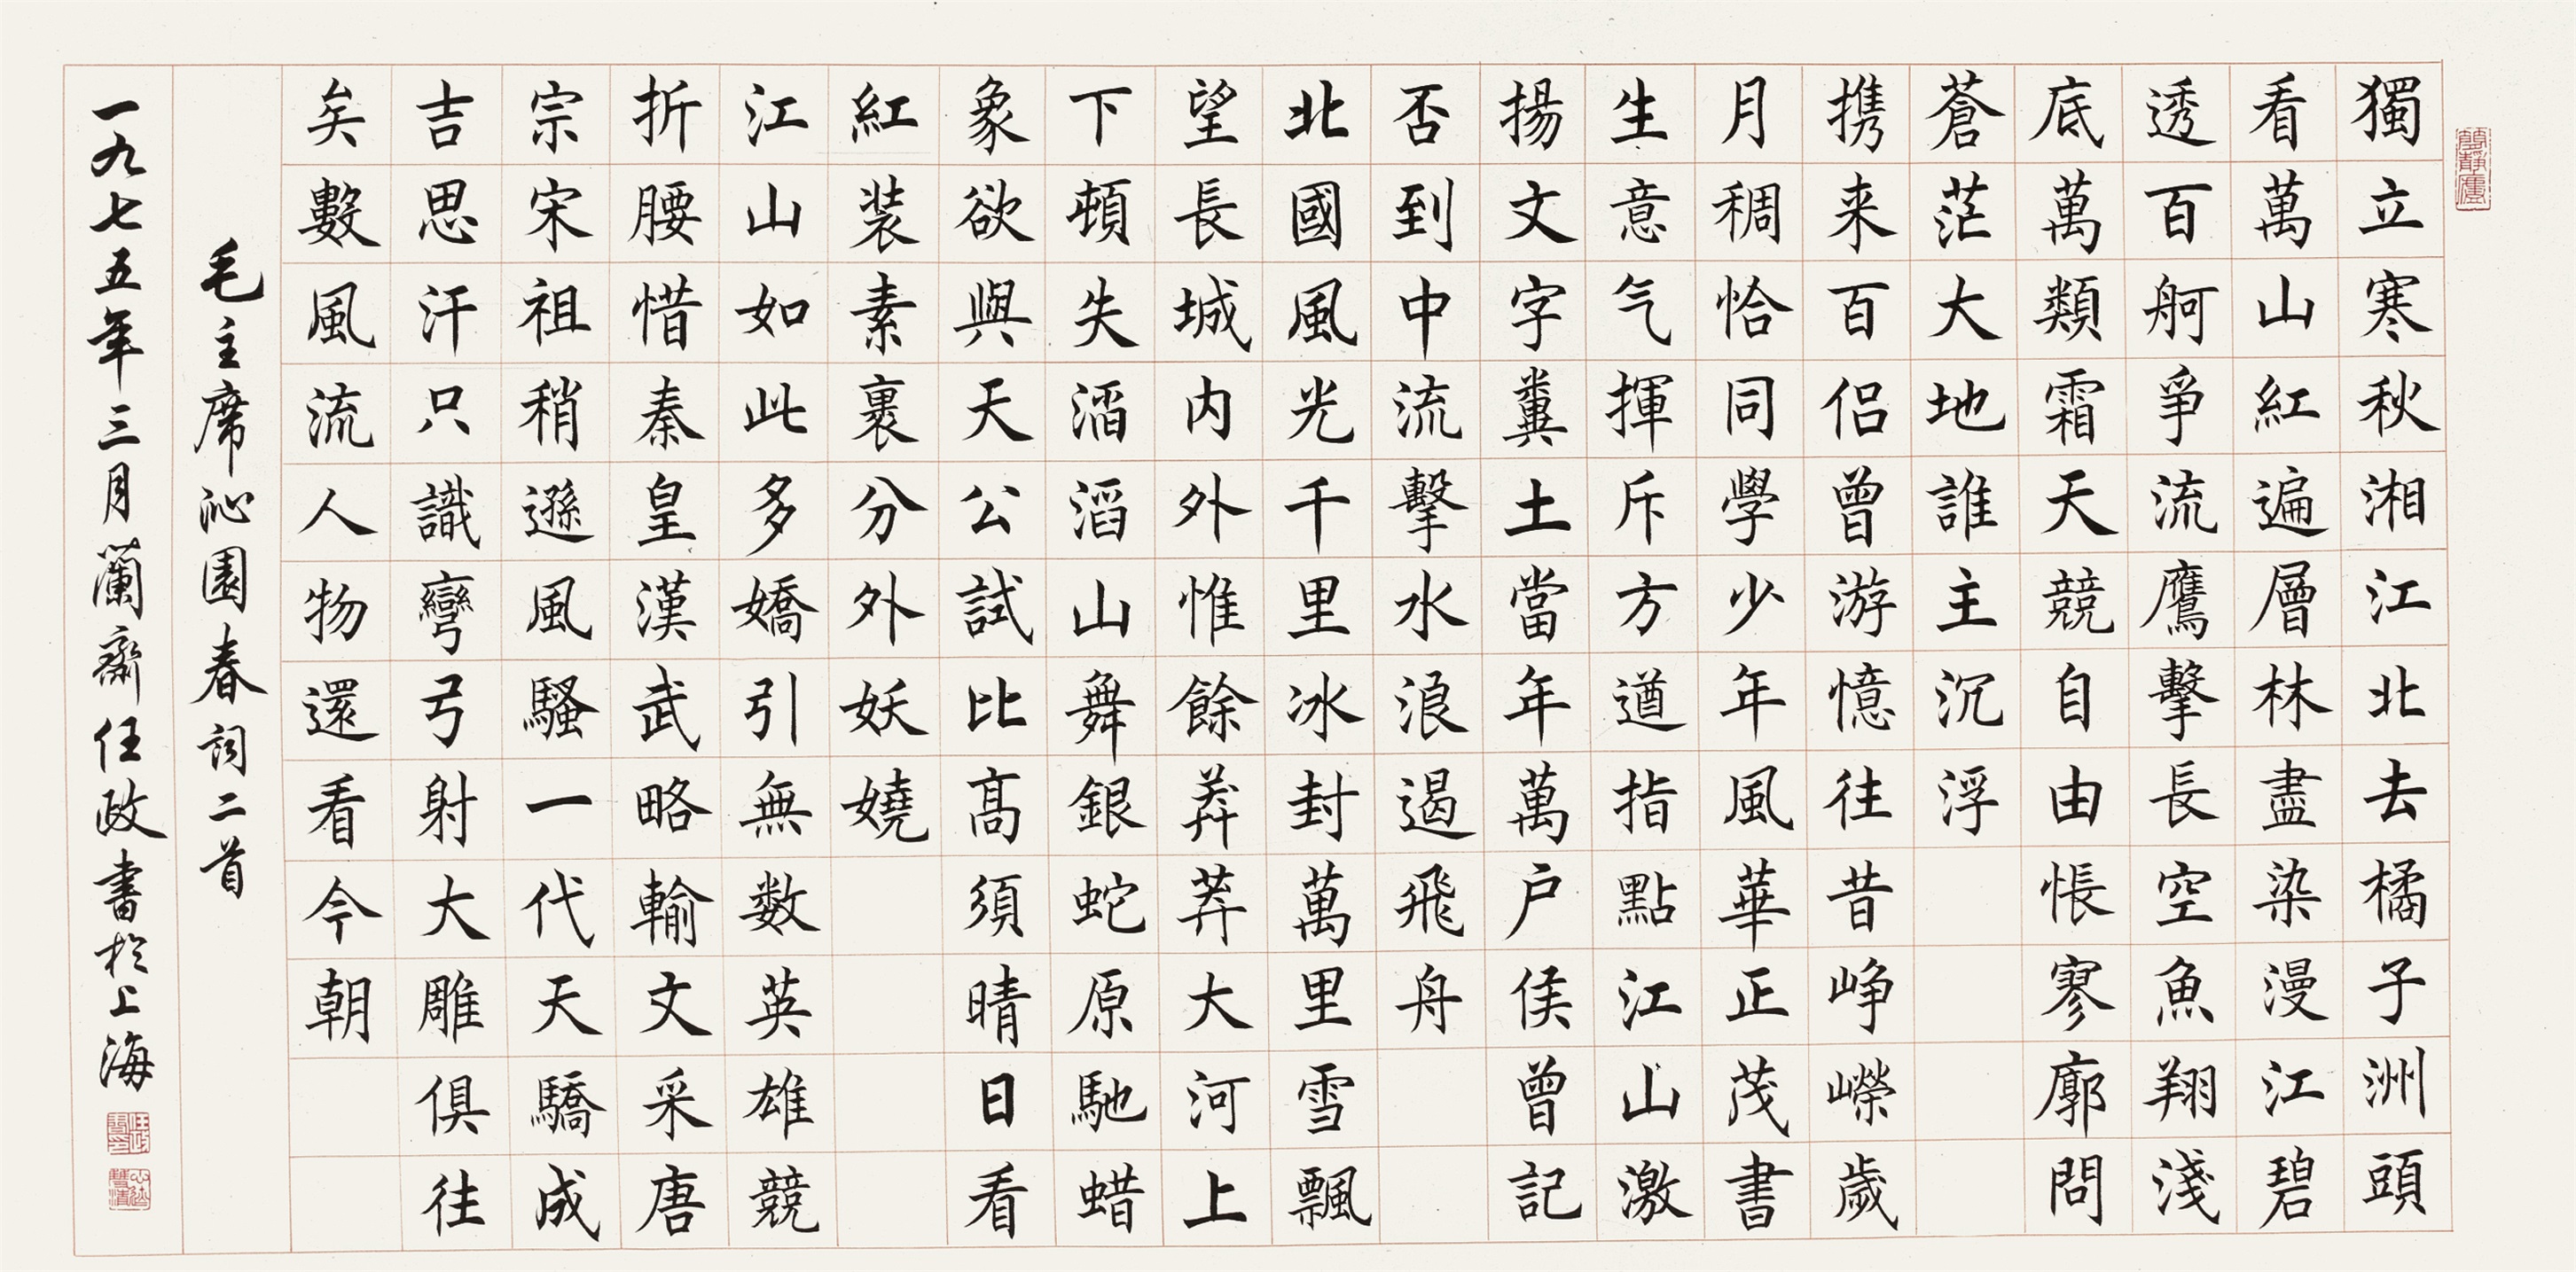 獨立寒秋湘江北去橘子洲頭
看萬山紅遍層林盡染漫江碧
透百舸爭流鷹擊長空魚翔淺
底萬類霜天競自由悵寥廓問
蒼茫大地誰主沉浮
携来百侣曾游憶往昔崢嶸歲
月稠恰同學少年風華正茂書
生意气揮斥方遒指點江山激
揚文字糞土當年萬户侯曾記
否到中流擊水浪遏飛舟
北國風光千里冰封萬里雪飄
望長城内外惟餘莽莽大河上
下頓失滔滔山舞銀蛇原馳蜡
象欲與天公試比高須晴日看
紅装素裹分外妖嬈
江山如此多嬌引無数英雄競
折腰惜秦皇漢武略輸文采唐
宗宋祖稍遜風騷一代天驕成
吉思汗只識彎弓射大雕俱往
矣數風流人物還看今朝
毛主席沁園春詞二首
一九七五年三月蘭齋任政書於上海